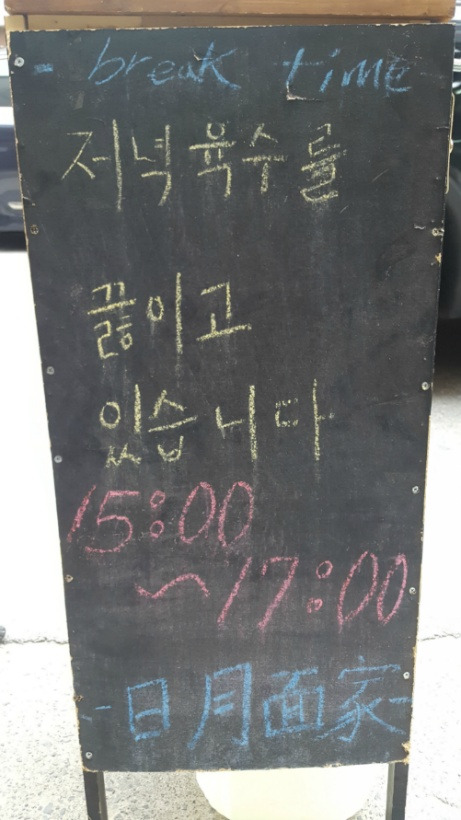 - break time
저녁 육수를
끓이고
있습니다
15:00
~17:00
-日月面家-